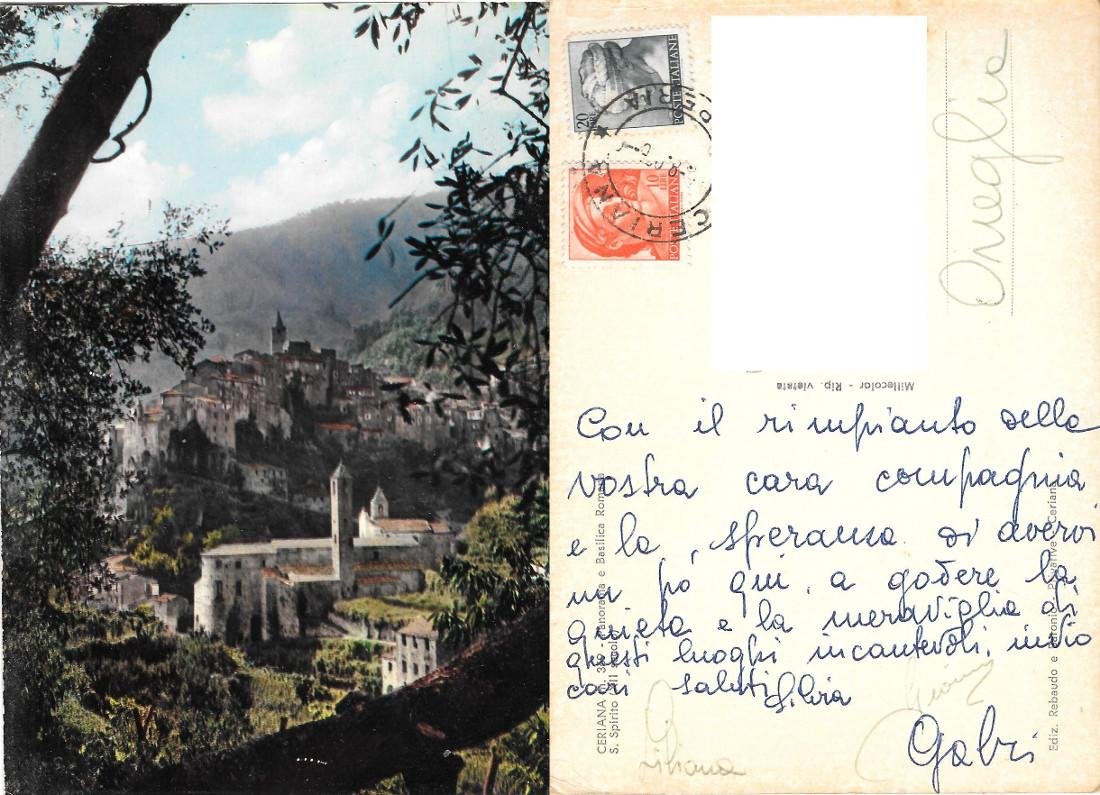 20
LIRE
POSTE ITALIANE
CERIANA
10
LIRE
POSTE ITALIANE
Oneglia
Millecolor - Rip. vietata
Con il rimpianto della
vostra cara compagnia
e la speranza di avervi
un pó qui, a godere la
quiete e la meraviglia di
questi luoghi incantevoli, invio
cari saluti
Silvia
Gabri
Liliana
CERIANA
S. Spirito
Panorama e Basilica
Ediz. Rebaudo e
Privative - Ceriana